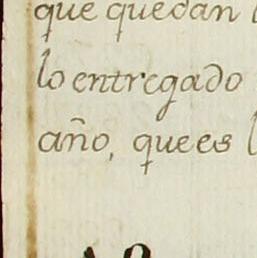 que quedan
lo entregado
año, que es